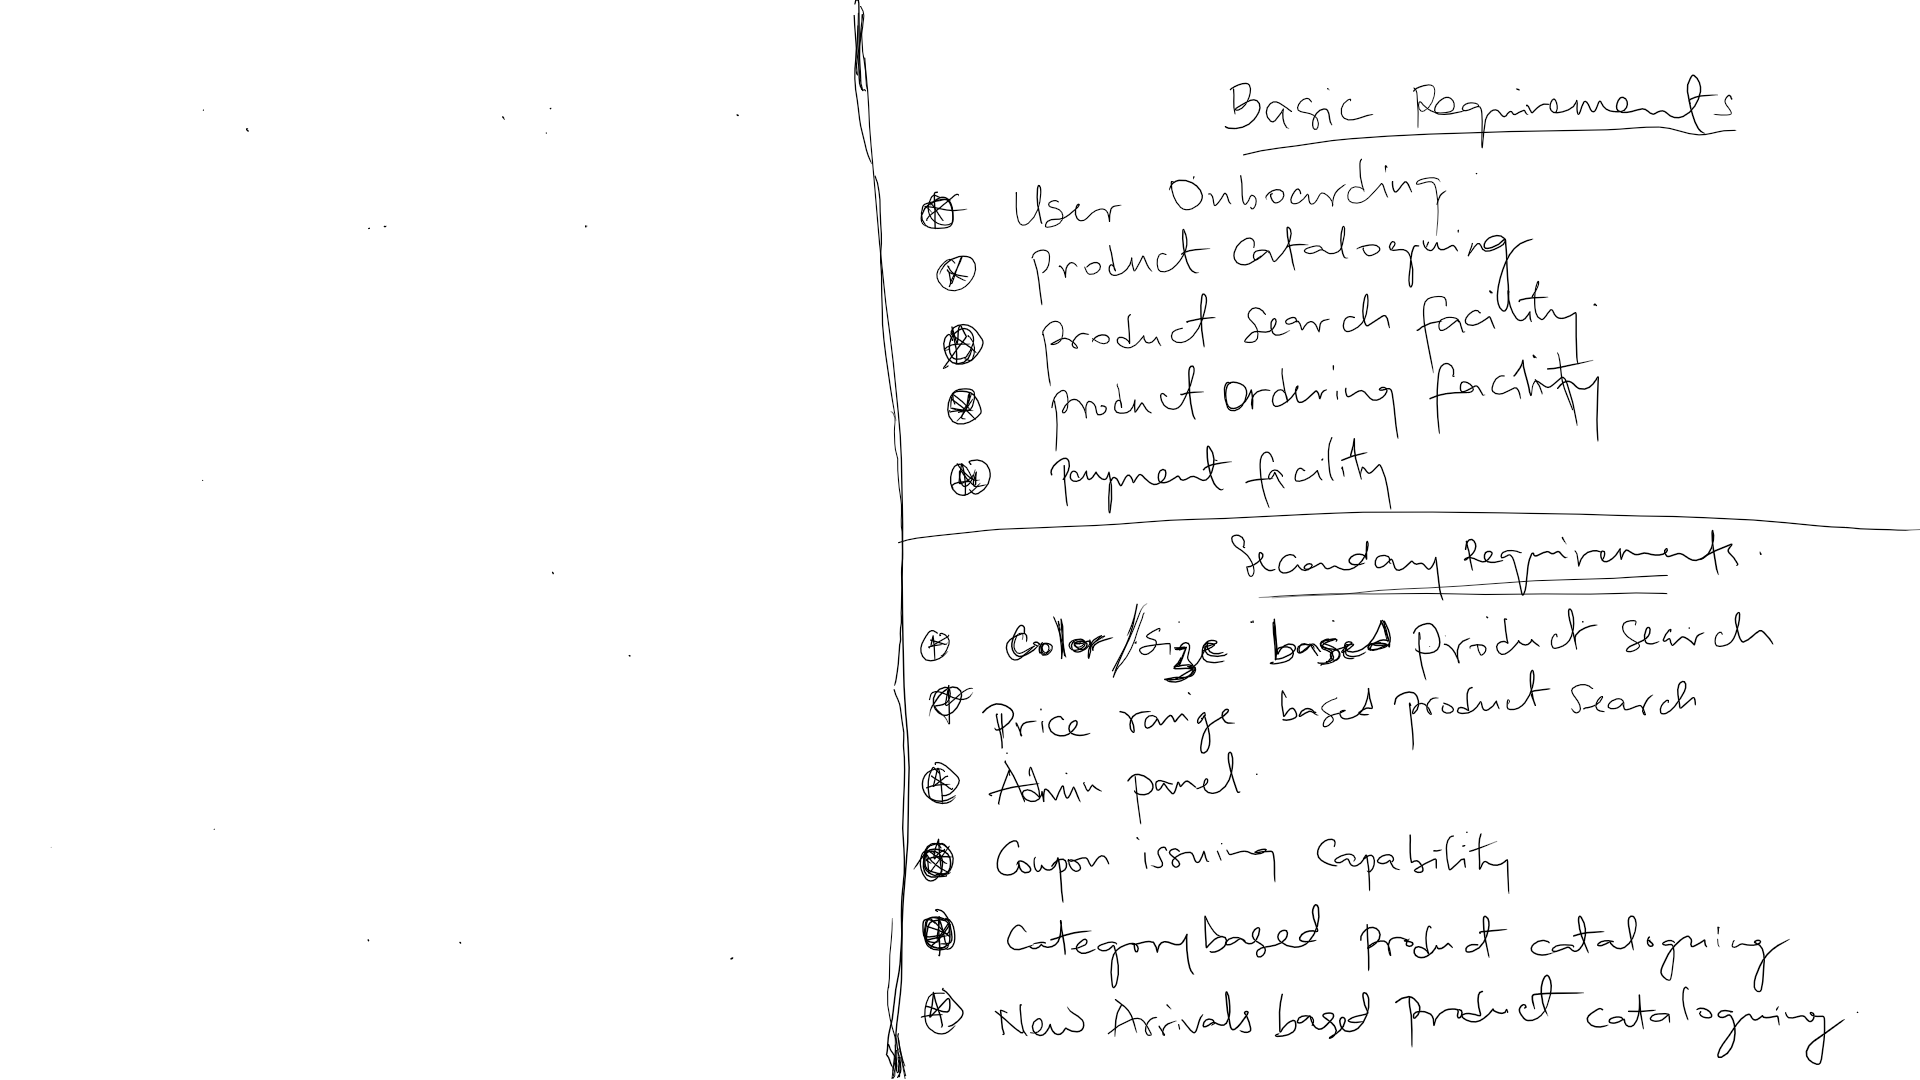 Basic Requirements
User Onboarding
Product Cataloguing
Product Search facility
Product Ordering facility
Payment facility
Secondary Requirements.
Color/size based Product Search
Price range based product Search
Admin panel
Coupon issuing Capability
Category based Product cataloguing
New Arrivals based Product cataloguing